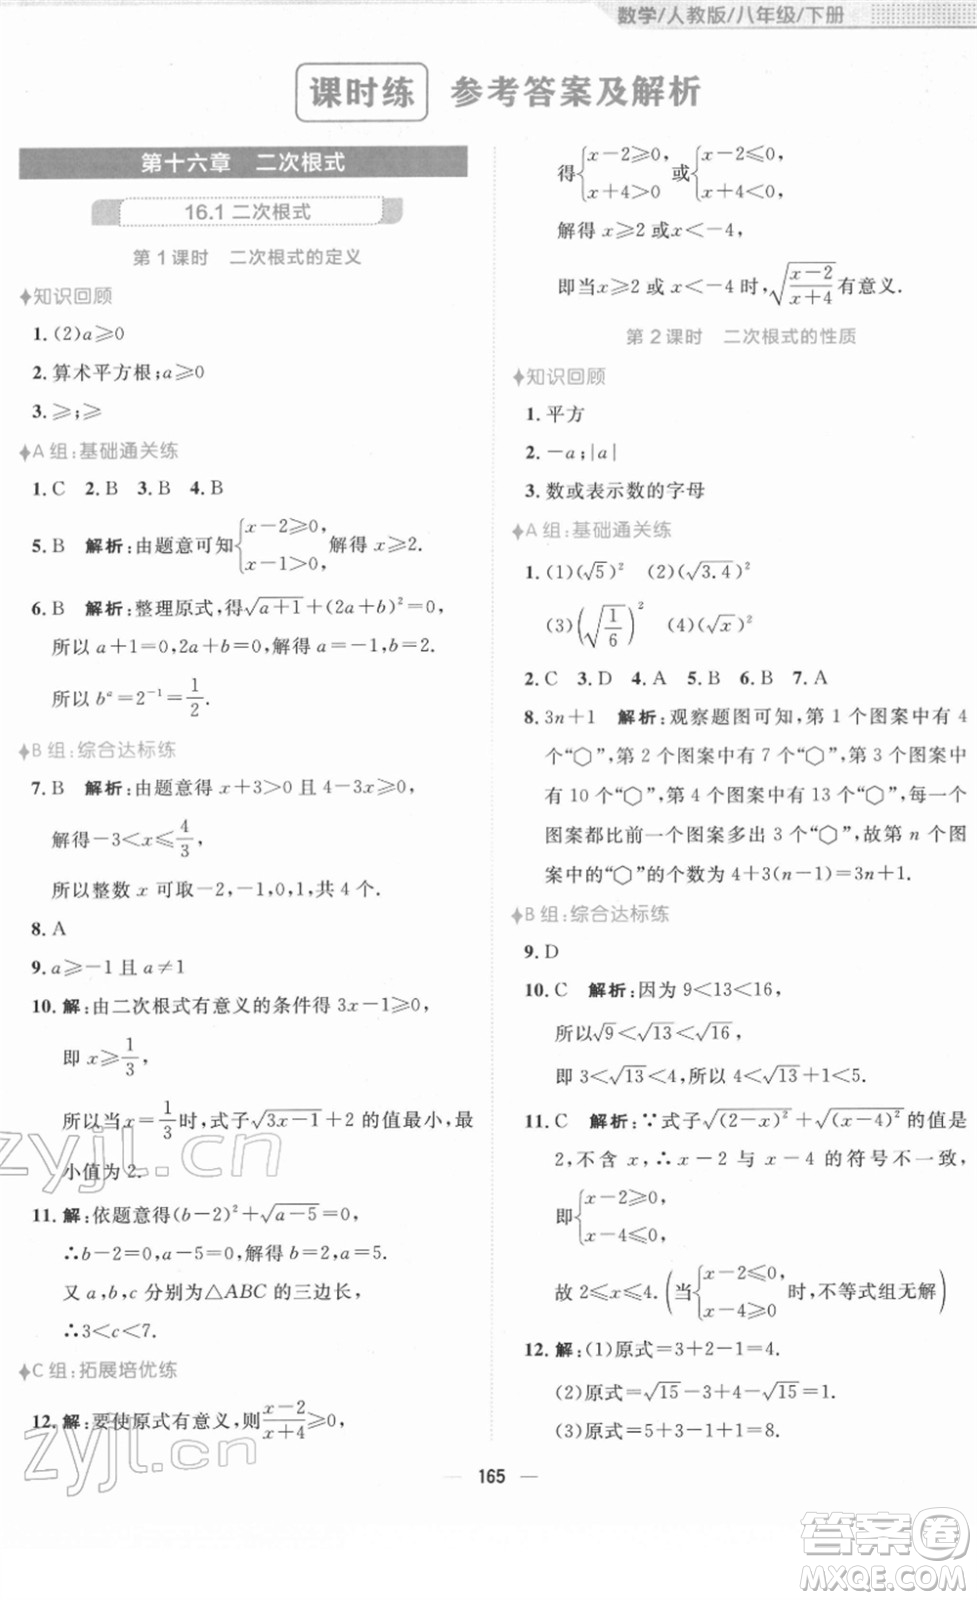 数学/人教版/八年级/下册
课时练 参考答案及解析
第十六章 二次根式
16.1 二次根式
第 1 课时 二次根式的定义
知识回顾
1. (2)a⩾0
2. 算术平方根;a⩾0
3. ⩾;⩾
A 组:基础通关练
1. C 2. B 3. B 4. B
5. B 解析:由题意可知{x−2⩾0, x−1>0, 解得 x⩾2.
6. B 解析:整理原式,得√(a+1)+(2a+b)²=0,
所以 a+1=0,2a+b=0,解得 a=−1,b=2.
所以 bᵃ=2⁻¹=1/2.
B 组:综合达标练
7. B 解析:由题意得 x+3>0 且 4−3x⩾0,
解得−3<x⩽4/3,
所以整数 x 可取−2,−1,0,1,共 4 个.
8. A
9. a⩾−1 且 a≠1
10. 解:由二次根式有意义的条件得 3x−1⩾0,
即 x⩾1/3,
所以当x=1/3时,式子√(3x−1)+2 的值最小,最
小值为 2.
11. 解:依题意得(b−2)²+√(a−5)=0,
∴b−2=0,a−5=0,解得 b=2,a=5.
又 a,b,c 分别为△ABC 的三边长,
∴3<c<7.
C 组:拓展培优练
12. 解:要使原式有意义,则(x−2)/(x+4)⩾0,
得{x−2⩾0, x+4>0 或{x−2⩽0, x+4<0,
解得 x⩾2 或 x<−4,
即当x⩾2 或 x<−4 时,√((x−2)/(x+4))有意义.
第 2 课时 二次根式的性质
知识回顾
1. 平方
2. −a;|a|
3. 数或表示数的字母
A 组:基础通关练
1. (1)(√5)² (2)(√3.4)²
(3)(√(1/6))² (4)(√x)²
2. C 3. D 4. A 5. B 6. B 7. A
8. 3n+1 解析:观察题图可知,第 1 个图案中有 4
个“⬡”,第 2 个图案中有 7 个“⬡”,第 3 个图案中
有 10 个“⬡”,第 4 个图案中有 13 个“⬡”,每一个
图案都比前一个图案多出 3 个“⬡”,故第 n 个图
案中的“⬡”的个数为 4+3(n−1)=3n+1.
B 组:综合达标练
9. D
10. C 解析:因为 9<13<16,
所以√9<√13<√16,
即 3<√13<4,所以 4<√13+1<5.
11. C 解析:∵式子√(2−x)²+√(x−4)²的值是
2,不含 x,∴x−2 与 x−4 的符号不一致,
即{x−2⩾0, x−4⩽0,
故 2⩽x⩽4.(当{x−2⩽0, x−4⩾0时,不等式组无解)
12. 解:(1)原式=3+2−1=4.
(2)原式=√15−3+4−√15=1.
(3)原式=5+3−1+1=8.
165
zyjl.cn
zyjl.cn
答案卷
MXQE.COM